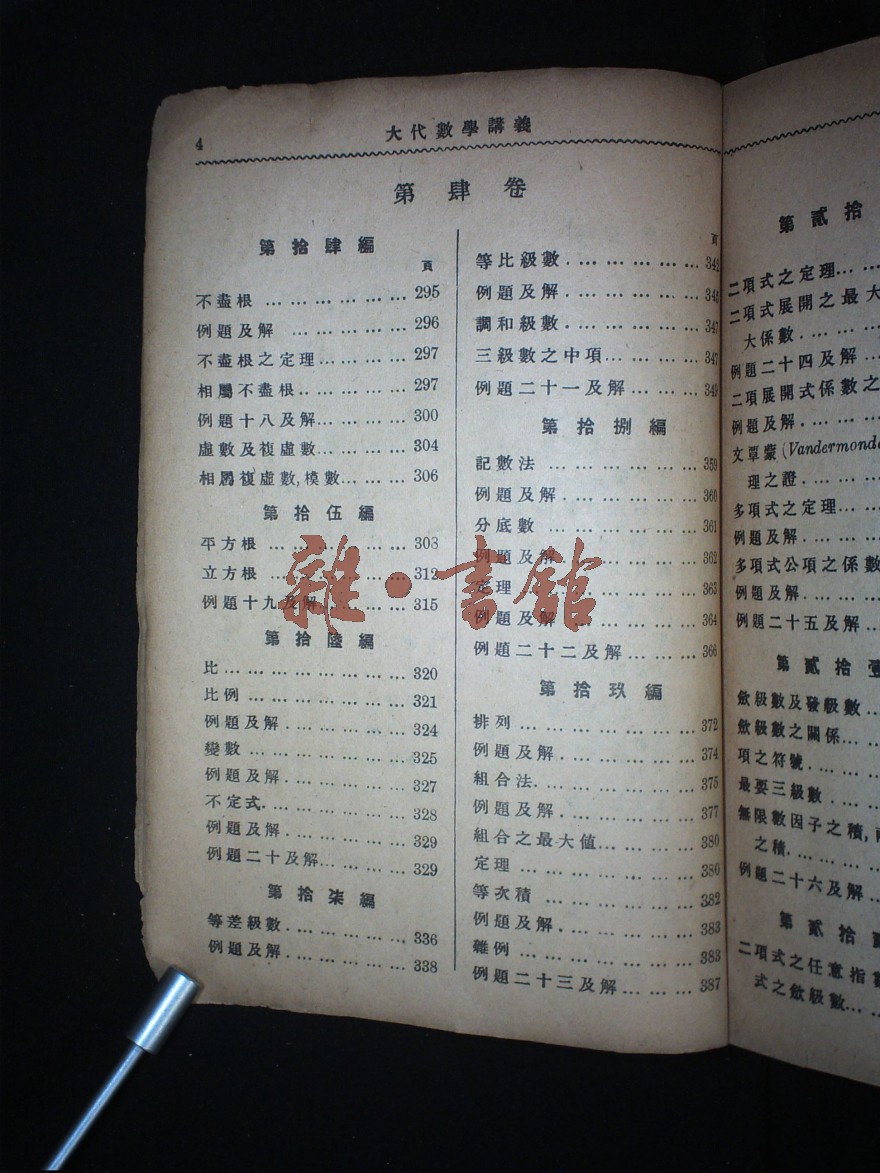 4
大代數學講義
第肆卷
第拾肆編
頁
不盡根 ... ... ... ... ... ... 295
例題及解 ... ... ... ... ... 296
不盡根之定理... ... ... ... 297
相屬不盡根.. ... ... ... ... 297
例題十八及解... ... ... ... 300
虛數及複虛數... ... ... ... 304
相屬複虛數,模數... ... ... 306
第拾伍編
平方根 ... ... ... ... ... ... 308
立方根 ... ... ... ... ... ... 312
例題十九及解... ... ... ... 315
第拾陸編
比 ... ... ... ... ... ... ... 320
比例 ... ... ... ... ... ... ... 321
例題及解 . ... ... ... ... ... 324
變數 ... ... ... ... ... ... ... 325
例題及解 . ... ... ... ... ... 327
不定式. ... ... ... ... ... ... 328
例題及解 . ... ... ... ... ... 329
例題二十及解... ... ... ... 329
第拾柒編
等差級數 . ... ... ... ... ... 336
例題及解 . ... ... ... ... ... 338
頁
等比級數 . ... ... ... ... ... 342
例題及解 . ... ... ... ... ... 345
調和級數 . ... ... ... ... ... 347
三級數之中項... ... ... ... 347
例題二十一及解 ... ... ... 349
第拾捌編
記數法 ... ... ... ... ... ... 359
例題及解 . ... ... ... ... ... 360
分底數 ... ... ... ... ... ... 361
例題及解 . ... ... ... ... ... 362
定理 ... ... ... ... ... ... ... 363
例題及解 ... ... ... ... ... 364
例題二十二及解 ... ... ... 366
第拾玖編
排列 ... ... ... ... ... ... ... 372
例題及解 . ... ... ... ... ... 374
組合法. ... ... ... ... ... ... 375
例題及解 . ... ... ... ... ... 377
組合之最大值... ... ... ... 380
定理 ... ... ... ... ... ... ... 380
等次積 ... ... ... ... ... ... 382
例題及解 . ... ... ... ... ... 383
雜例 ... ... ... ... ... ... ... 383
例題二十三及解 ... ... ... 387
第貳拾
二項式之定理... ...
二項式展開之最大
大係數 . ... ...
例題二十四及解 ...
二項展開式係數之
例題及解 . ... ...
文覃蒙 (Vandermonde
理之證 . ... ...
多項式之定理... ...
例題及解 . ... ...
多項式公項之係數
例題及解 . ... ...
例題二十五及解 ...
第貳拾壹
斂級數及發級數 ...
斂級數之關係... ...
項之符號 . ... ...
最要三級數 . ... ...
無限數因子之積,
之積. ... ...
例題二十六及解 ...
第貳拾
二項式之任意指
式之斂級數... ...
雜·書館